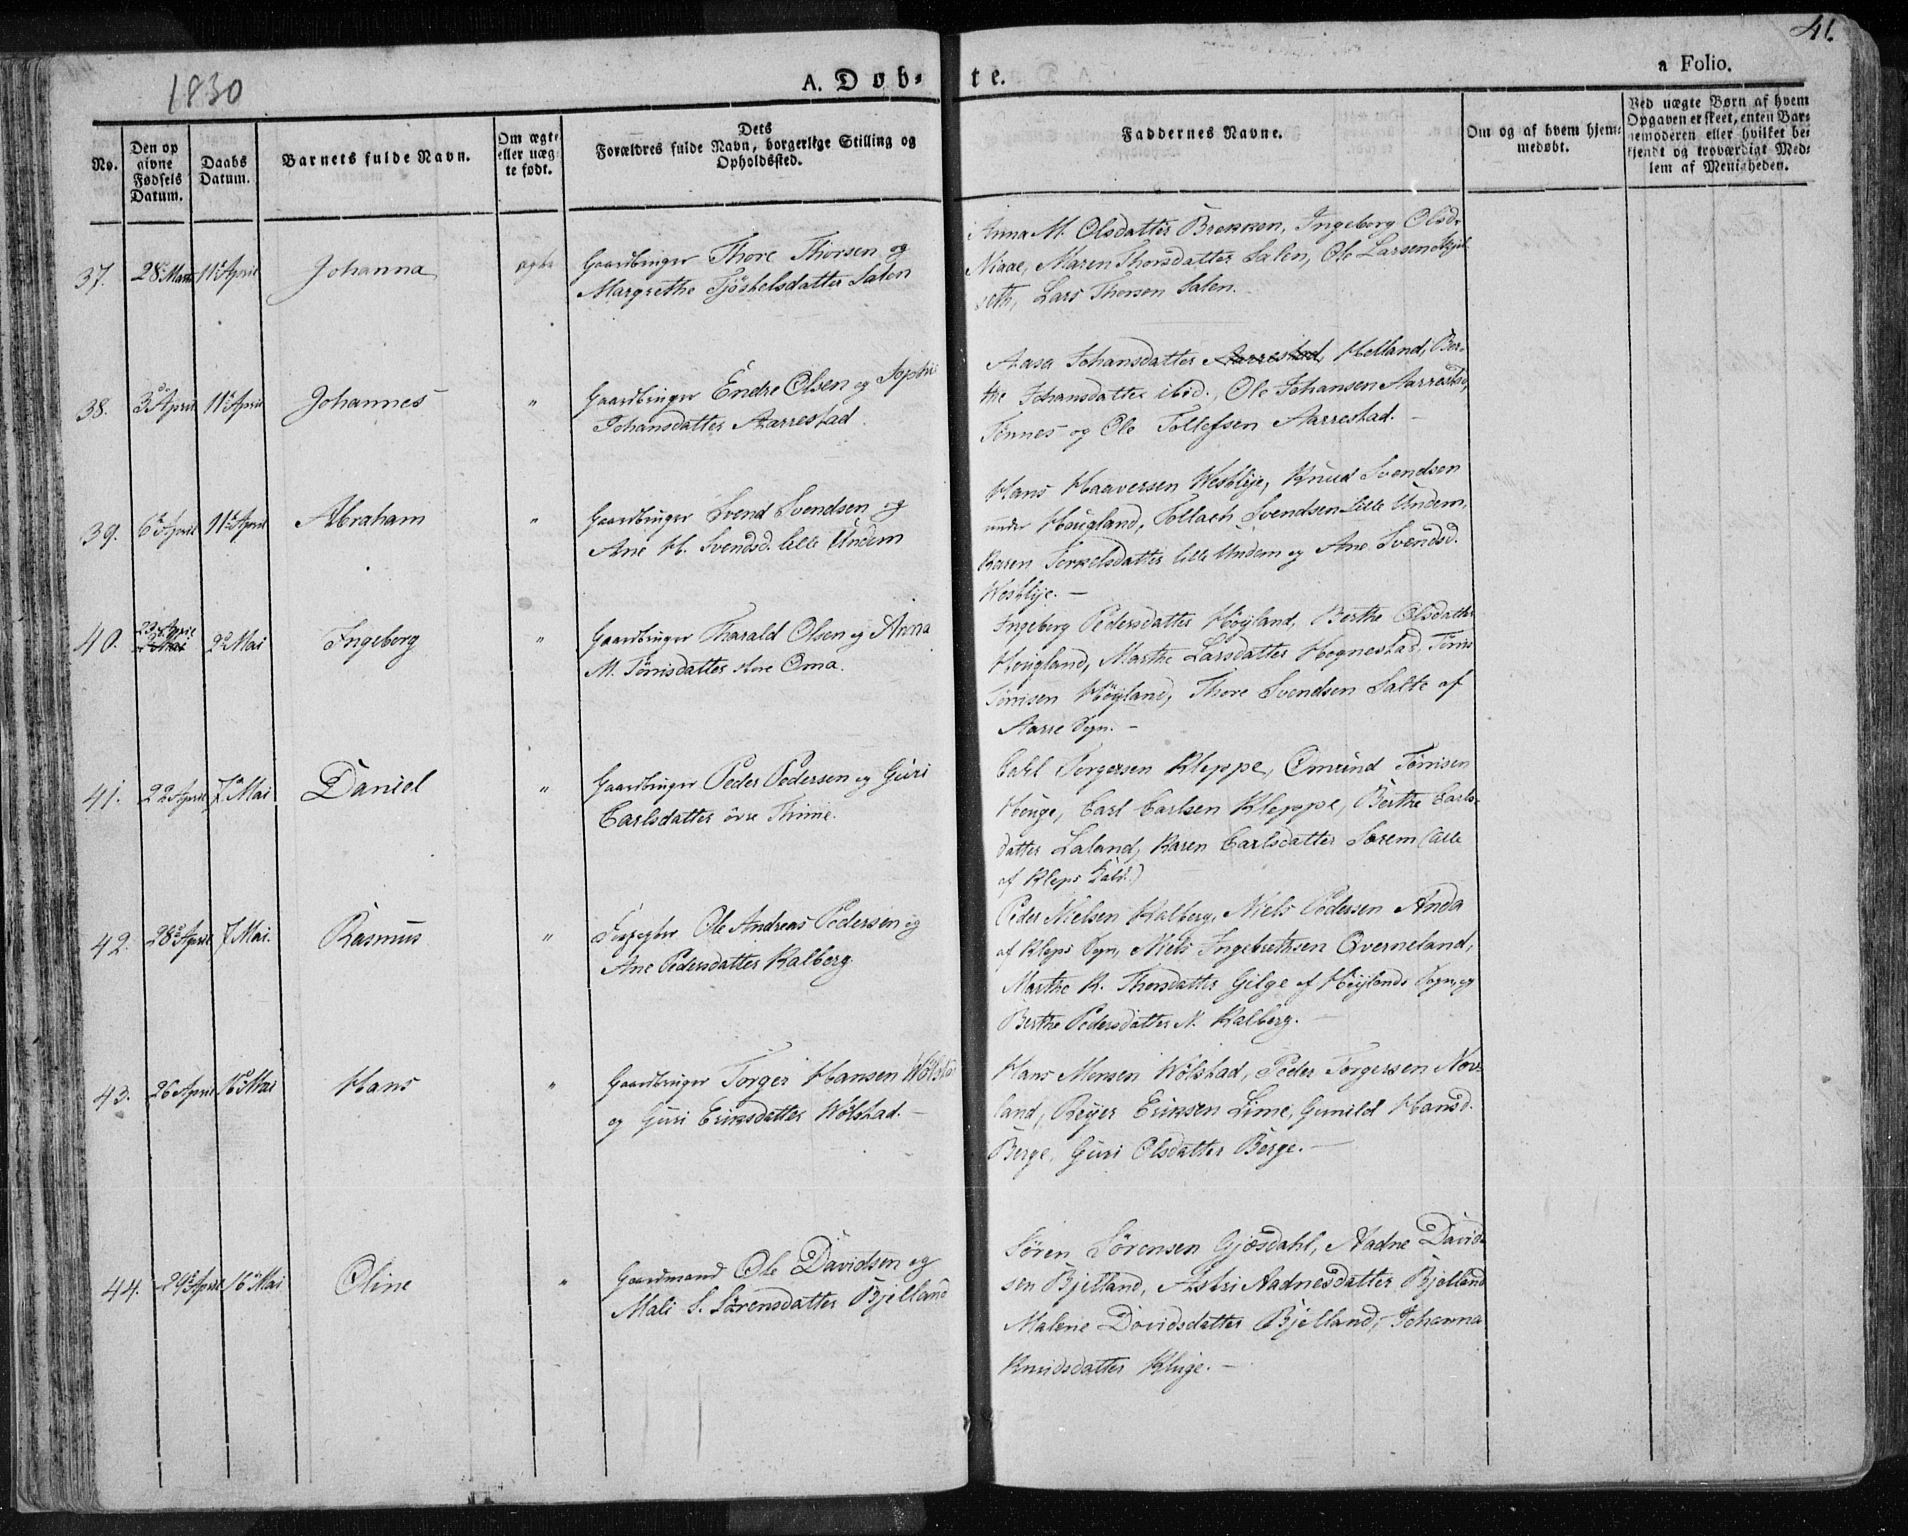 41.
1830
A. Døb- te.
a Folio.
No.
Den op
givne
Fødsels
Datum.
Daabs
Datum.
Barnets fulde Navn.
Om ægte
eller uæg-
te født.
Dets
Forældres fulde Navn, borgerlige Stilling og
Opholdssted.
Faddernes Navne.
Om og af hvem hjem-
medøbt.
Ved uægte Børn af hvem
Opgaven er skeet, enten Bar-
nemoderen eller hvilket be-
kjendt og troværdigt Med-
lem af Menigheden.
37. 28 Marts 11 April Johanna ægte
Gaardbruger Thore Thorsen og
Margrethe Tjöstelsdatter Salen
Anna M. Olsdatter Brekken, Ingeborg Olsd.
Niaae, Maren Thorsdatter Salen, Ole Larsen
seth, Lars Thorsen Salen.
38. 3 April 11 April Johannes "
Gaardbruger Endre Olsen og Sophie
Johansdatter Aarrestad.
Aasa Johansdatter Aarrestad, Helland, Ber-
the Johansdatter ibid., Ole Johansen Aarrestad,
Tönnes og Ole Tollefsen Aarrestad. -
39. 6 April 11 April Abraham "
Gaardbruger Svend Svendsen og
Ane H. Svendsd. lille Undem
Hans Haaversen Westlye, Knud Svendsen
under Hougland, Tollach Svendsen Lille Undem,
Karen Torkelsdatter lille Undem og Ane Svendsd.
Westlye. -
40. 22 April 2 Mai Ingeborg "
Gaardbruger Tharald Olsen og Anna
M. Tönnisdatter store Oma.
Ingeborg Pedersdatter Höyland, Berthe Olsdatter
Hougland, Marthe Larsdatter Hognestad, Tönnis
Tönnisen Höyland, Thore Svendsen Salte af
Aarre Sogn. -
41. 22 April 7 Mai Daniel "
Gaardbruger Peder Pedersen og Guri
Carlsdatter övre Thime.
Torgersen Kleppe, Omund Tönnisen
Houge, Carl Carlsen Kleppe, Berthe Carls-
datter Laland, Karen Carlsdatter Sørem (alle
af Kleps Gald.)
42. 28 April 7 Mai. Rasmus "
Ole Andreas Pedersen og
Ane Pedersdatter Kalberg.
Peder Nielsen Kalberg, Niels Pedersen Anda
af Kleps Sogn, Niels Ingebrethsen Qverneland,
Marthe K. Thorsdatter Gilge af Höylands Sogn, og
Berthe Pedersdatter N. Kalberg. -
43. 26 April 16 Mai Hans "
Gaardbruger Torger Hansen Wölstad
og Guri Eriksdatter Wölstad. -
Hans Monsen Wölstad, Peder Torgersen Nor-
land, Reyer Eriksen Lime, Gunild Hansd.
Berge, Guri Olsdatter Berge. -
44. 29 April 16 Mai Oline "
Gaardmand Ole Davidsen og
Mali S. Sörensdatter Bjelland
Sören Sörensen Gjesdahl, Aadne David-
sen Bjelland, Astri Aadnesdatter Bjelland
Malene Davidsdatter Bjelland, Johanna
Knudsdatter Kluge. -